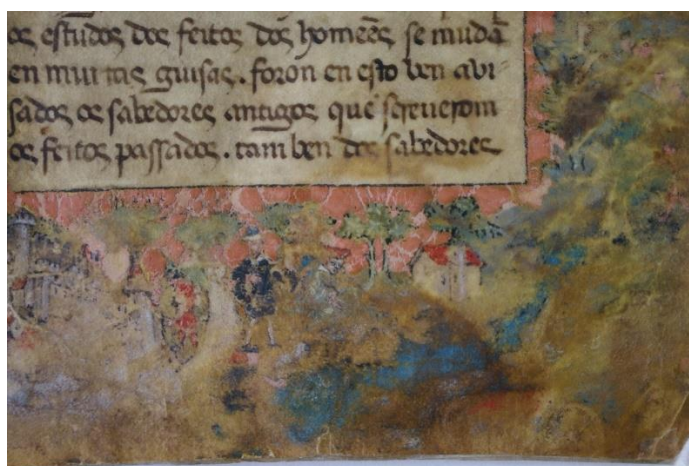 os estudos dos feitos dos homeẽs se mudã
en muitas guisas. foron en esto ben avi-
sados os sabedores antigos que screuerom
os feitos passados. tam ben dos sabedores